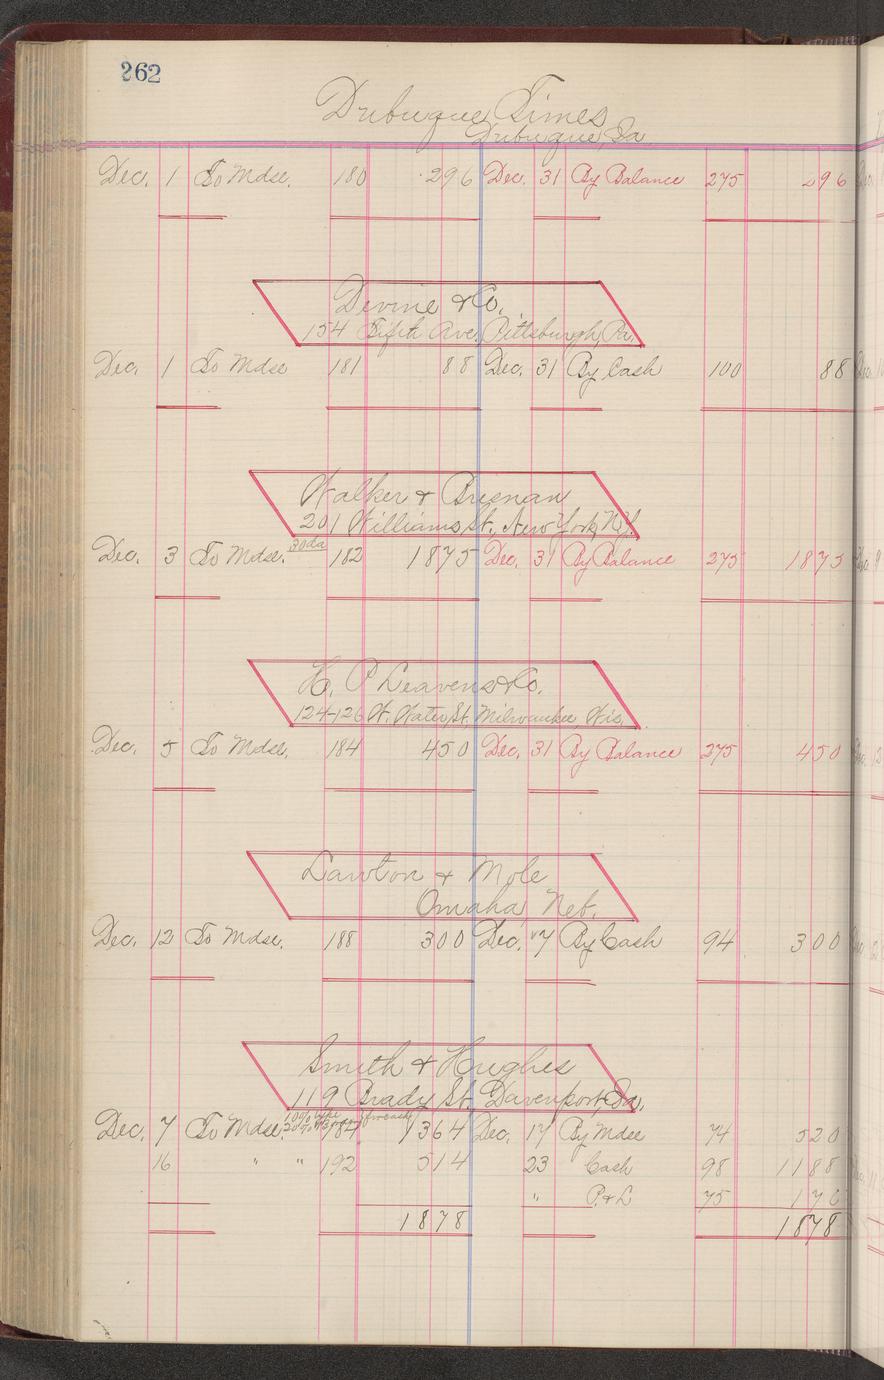 262
Dubuque Times
Dubuque, Ia.
Dec. 1 To Mdse. 180 296 Dec. 31 By Balance 275 296
Devine & Co.
154 Fifth Ave. Pittsburgh, Pa.
Dec. 1 To Mdse 181 88 Dec. 31 By Cash 100 88
Walker & Bresnan
201 Williams St., New York, N.Y.
Dec. 3 To Mdse. 30 da 182 1875 Dec. 31 By Balance 275 1875
H. P Leavens & Co.
124-126 W. Water St. Milwaukee Wis.
Dec. 5 To Mdse. 184 450 Dec. 31 By Balance 275 450
Lawton & Mole
Omaha, Neb.
Dec. 12 To Mdse. 188 300 Dec. 17 By Cash 94 300
Smith & Hughes
119 Brady St. Davenport, Ia.
Dec. 7 To Mdse. 184 1364 Dec. 17 By Mdse 74 520
16 " " 192 514 23 Cash 98 1188
" P. & L 75 170
1878 1878